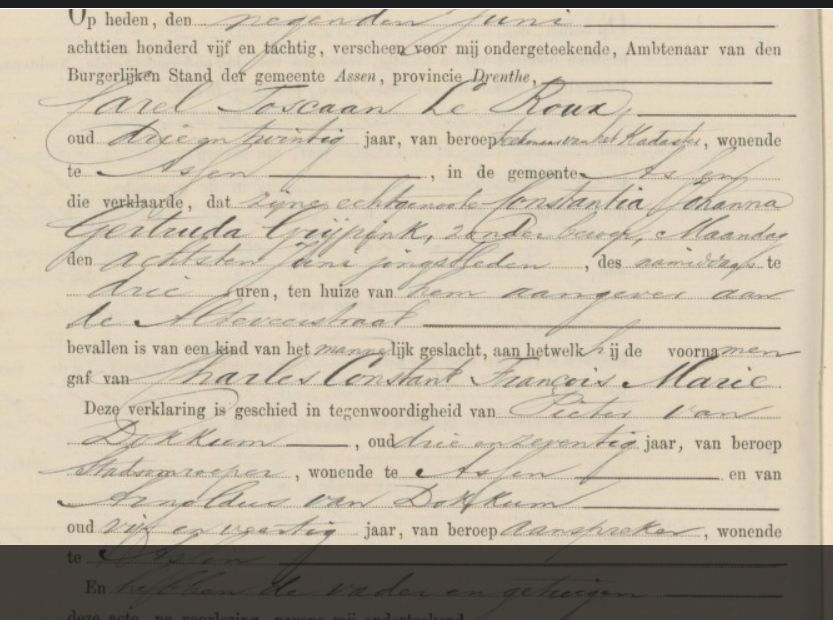 Op heden, den negenden Juni
achttien honderd vijf en tachtig, verscheen voor mij ondergeteekende, Ambtenaar van den
Burgerlijken Stand der gemeente Assen, provincie Drenthe,
Carel Toscaan Le Roux,
oud drie en twintig jaar, van beroep teekenaar van het Kadaster, wonende
te Assen, in de gemeente Assen
die verklaarde, dat zijne echtgenoote Constantia Johanna
Gertruda Grijpink, zonder beroep, Maandag
den achtsten Juni jongstleden, des namiddags te
drie uren, ten huize van hem aangever aan
de Alteveerstraat
bevallen is van een kind van het mannelijk geslacht, aan hetwelk hij de voornamen
gaf van Charles Constant François Marie
Deze verklaring is geschied in tegenwoordigheid van Pieter van
Dokkum, oud drie en zeventig jaar, van beroep
Stadsomroeper, wonende te Assen en van
Arnoldus van Dokkum
oud vijf en veertig jaar, van beroep aanspreker, wonende
te Assen
En hebben de vader en getuigen
deze acte, na voorlezing, nevens mij onderteekend.